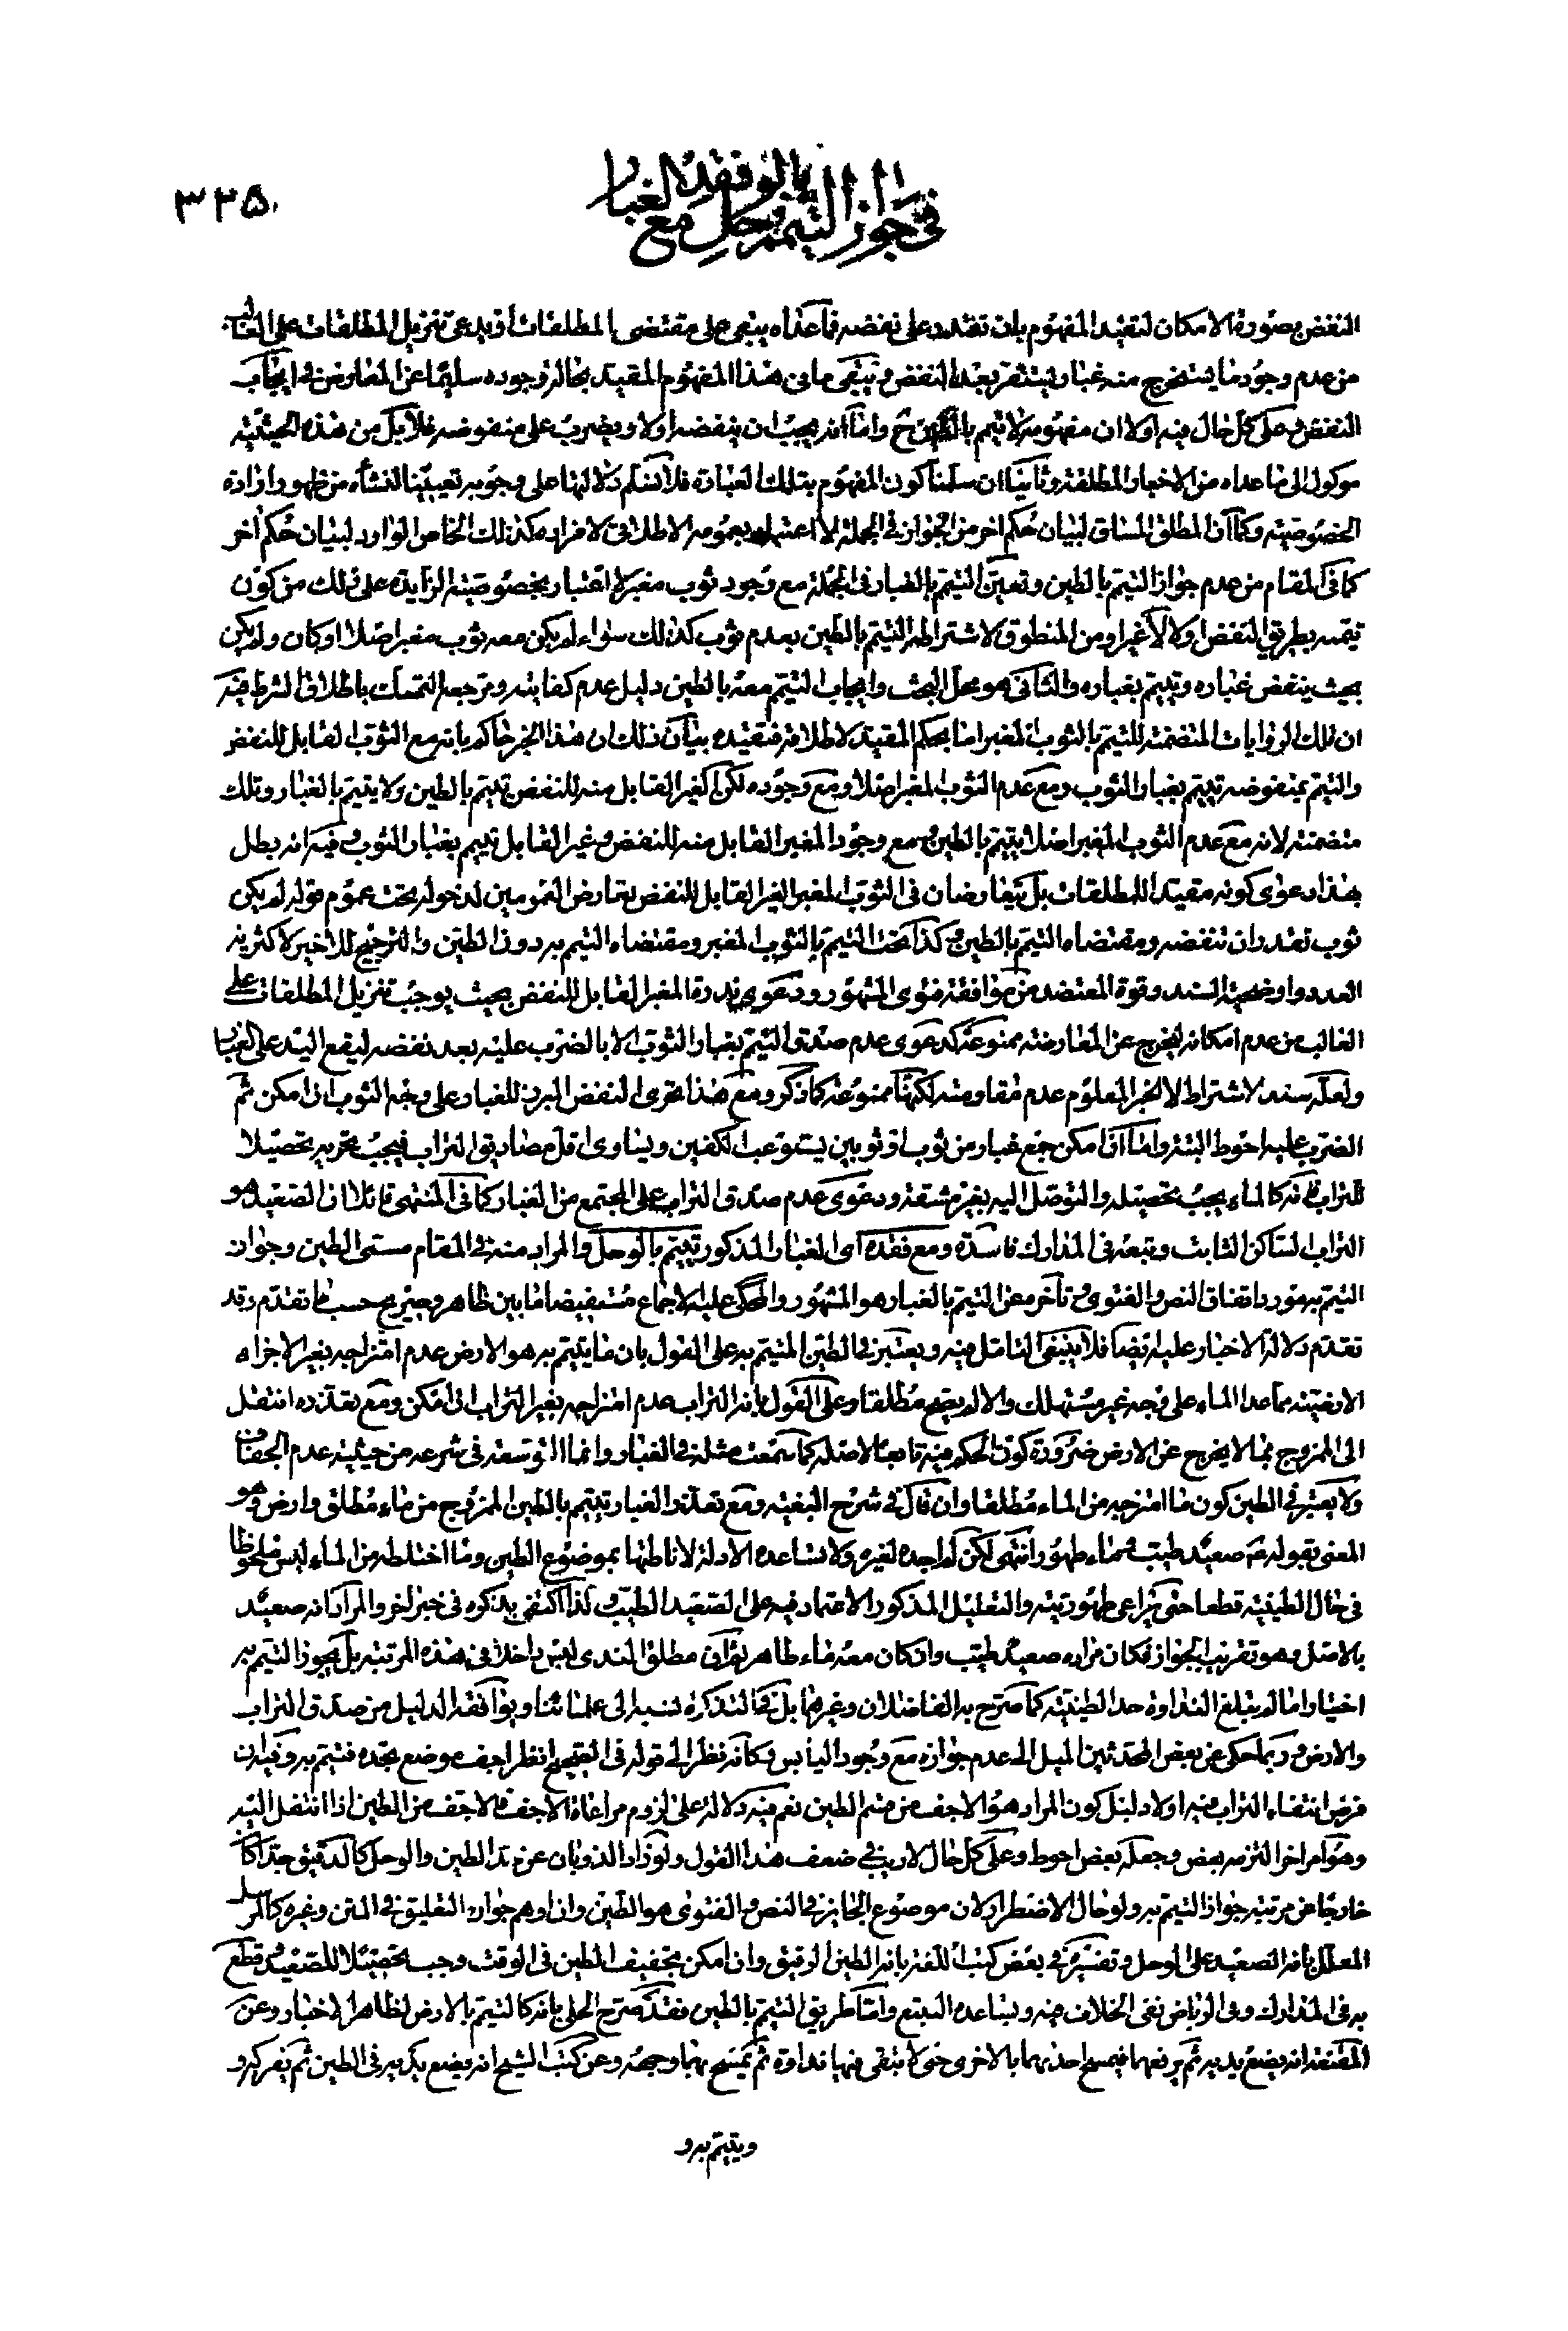 ٣٣٥
في جواز التيمم بالوحل مع فقد الغبار
النفض بصورة الامكان لتقييد المفهوم بان تقدر على نفضه فما عداه يبقى على مقتضى المطلقات او يدعى تنزيل المطلقات على الغالب
من عدم وجود ما يستخرج منه غبار يستقر بعد النفض ويبقى ما في هذا المفهوم المقيد بحاله وجوده سليما عن المعارض في ايجاب
النفض وعلى كل حال فيه اولا ان مفهومه لا تيمم بالطين ح واما انه يجب ان ينفضه اولا ويضرب على منفوضه فلا بل من هذه الحيثية
موكول الى ما عداه من الاخبار المطلقة وثانيا ان سلمنا كون المفهوم بتلك العبارة فلا نسلم دلالتها على وجوبه تعيينا لنشأه من ظهور ارادة
الخصوصية وكما ان المطلق المساق لبيان حكم اخر من الجواز في الجملة لا اعتبار بعمومه الاطلاقي لافراده كذلك الخاص الوارد لبيان حكم اخر
كما في المقام من عدم جواز التيمم بالطين وتعين التيمم بالغبار في الجملة مع وجود ثوب مغبر لا اعتبار بخصوصيته الزايدة على ذلك من كون
تيممه بطريق النفض اولا لا غير او من المنطوق لاشتراطه التيمم بالطين بعدم ثوب كذلك سواء لم يكن معه ثوب مغبر اصلا او كان ولم يكن
بحيث ينفض غباره ويتيمم بغباره والثاني هو محل البحث وايجاب التيمم معه بالطين دليل عدم كفايته ومرجعه التمسك باطلاق الشرط فيه
ان تلك الروايات المتضمنة للتيمم بالثوب المغبر اما بحكم المقيد لاطلاقه فتقيده بيان ذلك ان هذا الخبر حاكم بانه مع الثوب القابل للنفض
والتيمم بمنفوضه تيمم بغبار الثوب ومع عدم الثوب المغبر اصلا ومع وجوده لكن الغير القابل منه للنفض تيمم بالطين ولا يتيمم بالغبار وتلك
متضمنة لانه مع عدم الثوب المغبر اصلا يتيمم بالطين ومع وجود المغبر القابل منه للنفض وغير القابل تيمم بغبار الثوب وفيه انه بطل
بهذا دعوى كونه مقيدا للمطلقات بل يتعارضان في الثوب المغبر الغير القابل للنفض تعارض العمومين لدخوله تحت عموم قوله لم يكن
ثوب تقدر ان تنفضه ومقتضاه التيمم بالطين وكذا تحت التيمم بالثوب المغبر ومقتضاه التيمم به دون الطين والترجيح للاخير لاكثرية
العدد واوضحية السند وقوة المعتضد من موافقة فتوى المشهور ودعوى ندرة المغبر القابل للنفض بحيث يوجب تنزيل المطلقات على
الغالب من عدم امكانه ليخرج عن المعارضة ممنوعة كدعوى عدم صدق التيمم بغبار الثوب الا بالضرب عليه بعد نفضه ليقع اليد على الغبار
ولعله سند لاشتراط الخبر المعلوم عدم مقاومته لكنها ممنوعة كما ذكر ومع هذا تحرى النفض المبرز للغبار على وجه الثوب ان امكن ثم
الضرب عليه احوط البتة واما اذا امكن جمع غبار من ثوب او ثوبين يستوعب الكفين ويساوى اقل مصاديق التراب فيجب تحريه تحصيلا
للتراب فانه كالماء يجب تحصيله والتوصل اليه بغير مشقة ودعوى عدم صدق التراب على المجتمع من الغبار كما في المنتهى قائلا ان الصعيد هو
التراب الساكن الثابت وتبعه في المدارك فاسدة ومع فقده اى الغبار المذكور تيمم بالوحل والمراد منه في المقام مسمى الطين وجواز
التيمم به مورد اتفاق النص والفتوى وتأخره عن التيمم بالغبار هو المشهور والمحكي عليه الاجماع مستفيضا ما بين ظاهر وصريح حسب ما تقدم وقد
تقدم دلالة الاخبار عليه ايضا فلا ينبغي التامل فيه ويعتبر في الطين المتيمم به على القول بان ما يتيمم به هو الارض عدم امتزاجه بغير الاجزاء
الارضية مما عدا الماء على وجه غير مستهلك والا لم يصح مطلقا وعلى القول بانه التراب عدم امتزاجه بغير التراب ان امكن ومع تعذره انتقل
الى الممزوج بما لا يخرج عن الارض ضرورة كون الحكم فيه تابعا لاصله كما سمعت مثله في الغبار وانما التوسعة في شرعه من حيثية عدم الجفاف
ولا يعتبر في الطين كون ما امتزج به من الماء مطلقا وان قال في شرح البغية ومع تعذر الغبار تيمم بالطين الممزوج من ماء مطلق وارض وهو
المعنى بقوله ع صعيد طيب وماء طهور انتهى لكن لم اجده لغيره ولا تساعده الادلة لاناطتها بموضوع الطين وما اختلطه من الماء ليس ملحوظا
في حال الطينية قطعا حتى يراعى طهوريته والتعليل المذكور الاعتماد فيه على الصعيد الطيب ولذا اكتفى بذكره في خبر اخر والمراد انه صعيد
بالاصل وهو تقريب الجواز فكان مراده صعيد طيب وان كان معه ماء طاهر ثم ان مطلق الندى ليس داخلا في هذه المرتبة بل يجوز التيمم به
اختيارا ما لم يبلغ النداوة حد الطينية كما صرح به الفاضلان وغيرهما بل في التذكرة نسبه الى علمائنا ويوافقه الدليل من صدق التراب
والارض وربما حكي عن بعض المحدثين الميل الى عدم جوازه مع وجود اليابس وكأنه نظر الى قوله في الصحيح انظر اجف موضع تجده فتيمم به وفيه ان
فرض انتفاء التراب فيه اولا دليل كون المراد هو الاجف من قسم الطين نعم فيه دلالة على لزوم مراعاة الاجف فالاجف من الطين اذا انتقل اليه
وهو امر اخر التزمه بعض وجعله بعض احوط وعلى كل حال لا ريب في ضعف هذا القول ولو زاد الذوبان عن حد الطين والوحل كالدقيق جدا كان
خارجا عن مرتبة جواز التيمم به ولو حال الاضطرار لان موضوع الجائز في النص والفتوى هو الطين وان اوهم جوازه التعليق في المتن وغيره كالمرسل
المعلل بانه الصعيد على الوحل وتفسيره في بعض كتب اللغة بانه الطين الرقيق وان امكن تجفيف الطين في الوقت وجب تحصيلا للصعيد وقطع
به في المدارك وفي الرياض نفى الخلاف فيه ويساعده التتبع واما طريق التيمم بالطين فقد صرح الحلي بانه كالتيمم بالارض لظاهر الاخبار وعن
المقنعة انه يضع يديه ثم يرفعهما فيمسح احديهما بالاخرى حتى لا يبقى فيهما نداوة ثم يمسح بهما وجهه وعن كتب الشيخ انه يضع يديه في الطين ثم يفركه و
ويتيمم به و